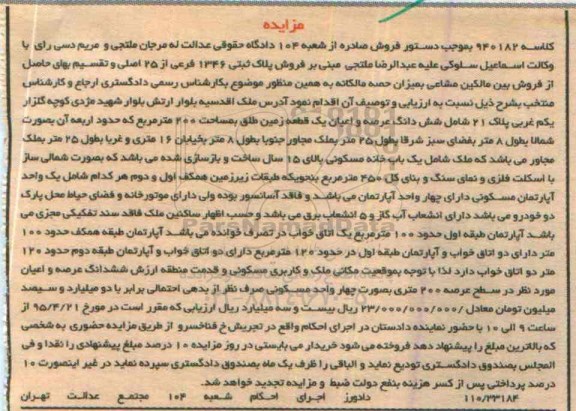 مزایده
کلاسه ۹۴۰۱۸۲ بموجب دستور فروش صادره از شعبه ۱۰۴ دادگاه حقوقی عدالت له مرجان ملتجی و مریم دسی رای با
وکالت اسماعیل سلوکی علیه عبدالرضا ملتجی مبنی بر فروش پلاک ثبتی ۱۳۴۶ فرعی از ۲۵ اصلی و تقسیم بهای حاصل
از فروش بین مالکین مشاعی بمیزان حصه مالکانه به همین منظور موضوع بکارشناس رسمی دادگستری ارجاع و کارشناس
منتخب بشرح ذیل نسبت به ارزیابی و توصیف آن اقدام نمود آدرس ملک اقدسیه بلوار ارتش بلوار شهید مژدی کوچه گلزار
یکم غربی پلاک ۲۱ شامل شش دانگ عرصه و اعیان یک قطعه زمین طلق بمساحت ۲۰۰ مترمربع که حدود اربعه آن بصورت
شمالا بطول ۸ متر بفضای سبز شرقا بطول ۲۵ متر بملک مجاور جنوبا بطول ۸ متر بخیابان ۱۶ متری و غربا بطول ۲۵ متر بملک
مجاور می باشد که ملک شامل یک باب خانه مسکونی بالای ۱۵ سال ساخت و بازسازی شده می باشد که بصورت شمالی ساز
با اسکلت فلزی و نمای سنگ و بنای کل ۴۵۰ مترمربع بنحویکه طبقات زیرزمین همکف اول و دوم هر کدام شامل یک واحد
آپارتمان مسکونی دارای چهار واحد آپارتمان می باشد و فاقد آسانسور بوده ولی دارای موتورخانه و فضای حیاط محل پارک
دو خودرو می باشد دارای انشعاب آب گاز و ۵ انشعاب برق می باشد و حسب اظهار ساکنین ملک فاقد سند تفکیکی مجزی می
باشد آپارتمان طبقه اول حدود ۱۰۰ مترمربع یک اتاق خواب در تصرف خوانده می باشد آپارتمان طبقه همکف حدود ۱۰۰
متر دارای دو اتاق خواب و آپارتمان طبقه اول در حدود ۱۲۰ مترمربع دارای دو اتاق خواب و آپارتمان طبقه دوم حدود ۱۲۰
متر دو اتاق خواب دارد لذا با توجه بموقعیت مکانی ملک و کاربری مسکونی و قدمت منطقه ارزش ششدانگ عرصه و اعیان
مورد نظر در سطح عرصه ۲۰۰ متری بصورت چهار واحد مسکونی صرف نظر از بدهی احتمالی برابر با دو میلیارد و سیصد
میلیون تومان معادل ۲۳/۰۰۰/۰۰۰/۰۰۰ ریال بیست و سه میلیارد ریال ارزیابی که مقرر است در مورخ ۹۵/۴/۲۱ از
ساعت ۹ الی ۱۰ با حضور نماینده دادستان در اجرای احکام واقع در تجریش خ فناخسرو از طریق مزایده حضوری به شخصی
که بالاترین مبلغ را پیشنهاد دهد فروخته می شود خریدار می بایستی در روز مزایده ۱۰ درصد مبلغ پیشنهادی را نقدا و فی
المجلس بصندوق دادگستری تودیع نماید و الباقی را ظرف یک ماه بصندوق دادگستری سپرده نماید در غیر اینصورت ۱۰
درصد پرداختی پس از کسر هزینه بنفع دولت ضبط و مزایده تجدید خواهد شد.
۱۱۰/۳۳۱۸۴ دادورز اجرای احکام شعبه ۱۰۴ مجتمع عدالت تهران